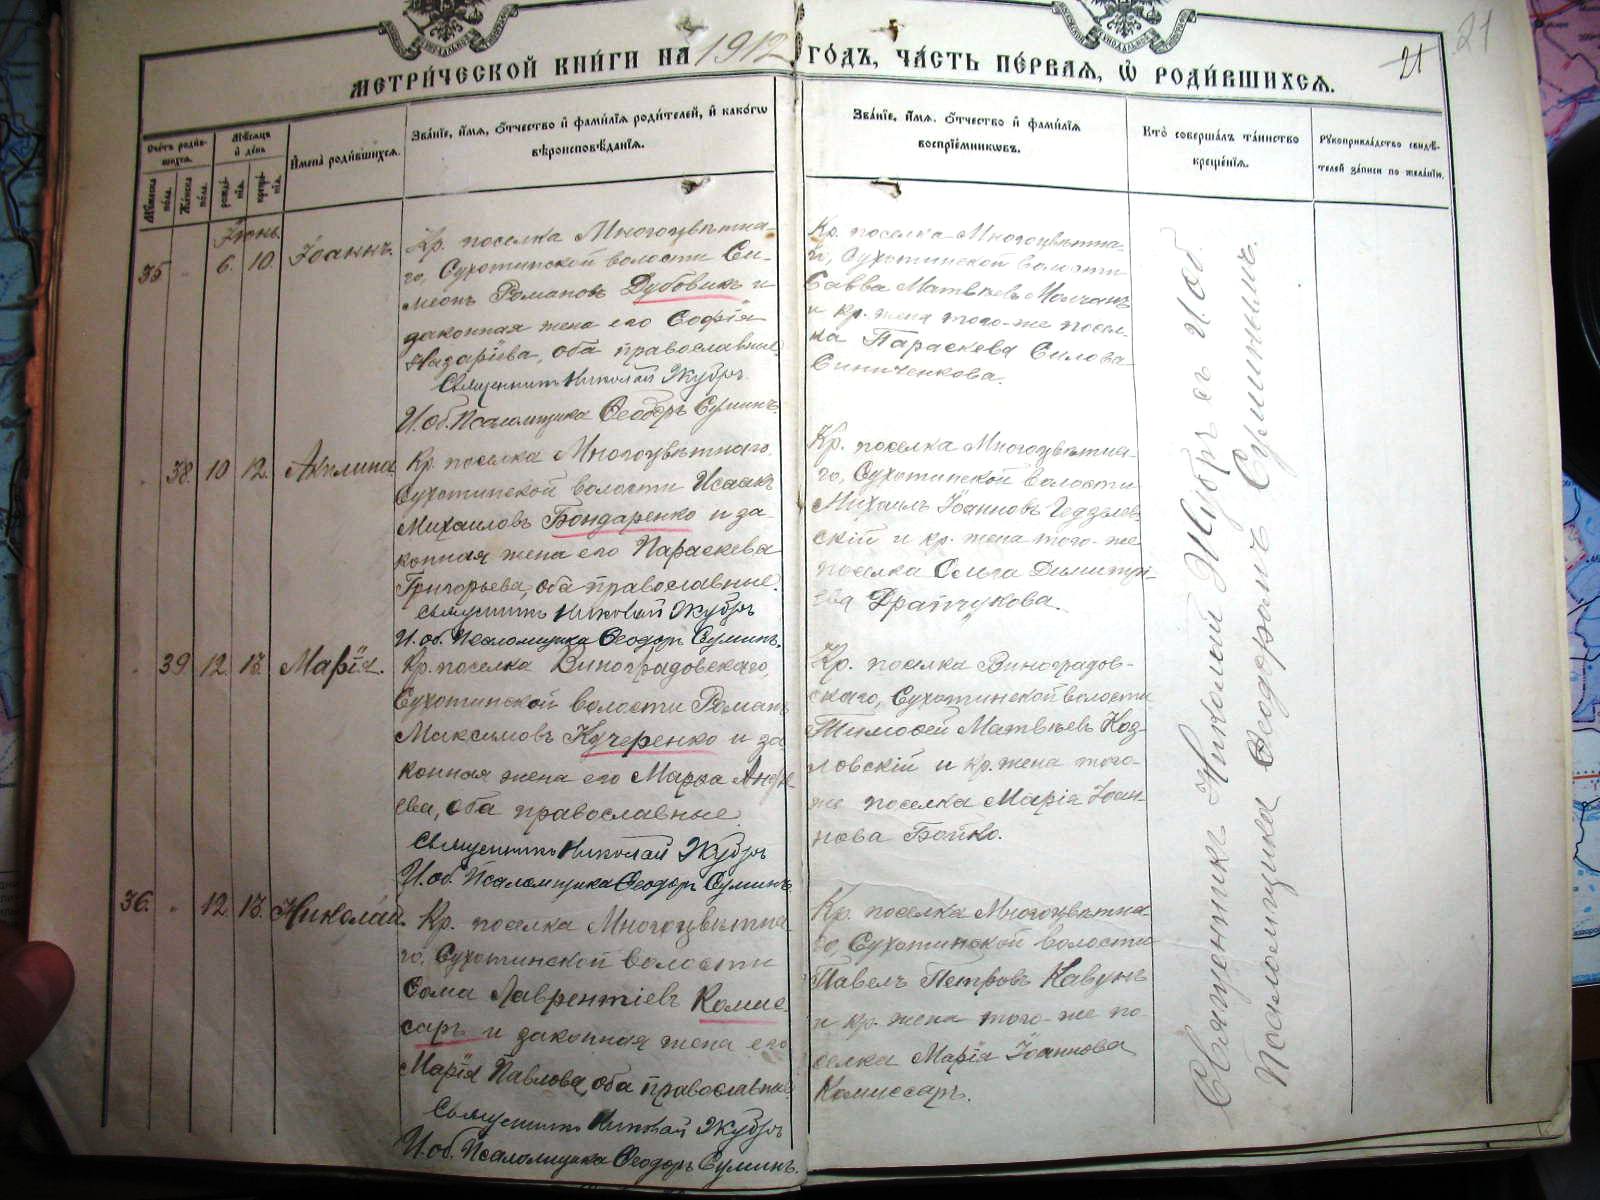 МЕТРИ́ЧЕСКОЙ КНИ́ГИ НА 1912 ГО́ДЪ, ЧА́СТЬ ПЕ́РВАѦ, Ѽ РОДИ́ВШИХСѦ.
21
21
Счётъ роди́вшихся.
Мѣ́сяцъ и де́нь
Имена̀ роди́вшихся.
Зва́нїе, и́мя, ѻ́тчество и фами́лїя роди́телей, и како́гѡ
вѣроисповѣ́данїя.
Зва́нїе, и́мя, ѻ́тчество и фами́лїя
воспрїе́мникѡвъ.
Кто̀ соверша́лъ та́инство
креще́нїя.
Рꙋкоприкла́дство свидѣ́-
телей за́писи по жела́нїю.
Мꙋ́жеска по́ла.
Же́нска по́ла.
рожде́нїя.
креще́нїя.
Іюнь.
35 " 6. 10. Іоаннъ.
Кр. поселка Многоцвѣтна-
го, Сухотинской волости Си-
меонъ Романовъ Дубовикъ и
законная жена его Софія
Назаріева, оба православные.
Священникъ Николай Жубръ
И. об. Псаломщика Ѳеодоръ Суминъ.
Кр. поселка Многоцвѣтна-
го, Сухотинской волости
Савва Матвѣевъ Молчанъ
и кр. жена того-же посел-
ка Параскева Силова
Синиченкова.
38. 10 12. Акилина
Кр. поселка Многоцвѣтнаго,
Сухотинской волости Исаакъ
Михаиловъ Бондаренко и за-
конная жена его Параскева
Григорьева, оба православные.
Священникъ Николай Жубръ
И. об. Псаломщика Ѳеодоръ Суминъ.
Кр. поселка Многоцвѣтна-
го, Сухотинской волости
Михаилъ Іоанновъ
скій и кр. жена того-же
поселка Ольга Димитрі-
ева
39. 12. 13. Марія.
Кр. поселка Виноградовскаго,
Сухотинской волости Романъ
Максимовъ Кучеренко и за
конная жена его Марѳа Андре-
ева, оба православные.
Священникъ Николай Жубръ
И. об. Псаломщика Ѳеодоръ Суминъ.
Кр. поселка Виноградов-
скаго, Сухотинской волости
Тимоѳей Матвѣевъ Коз-
ловскій и кр. жена того-
же поселка Марія Іоан-
нова Бойко.
36. " 12. 13. Николай.
Кр. поселка Многоцвѣтна-
го, Сухотинской волости
Ѳома Лаврентіевъ Комис-
саръ и законная жена его
Марія Павлова, оба православные.
Священникъ Николай Жубръ
И. об. Псаломщика Ѳеодоръ Суминъ.
Кр. поселка Многоцвѣтна-
го, Сухотинской волости
Павелъ Петровъ Кавунъ
и кр. жена того-же по-
селка Марія Іоаннова
Комиссаръ.
Священникъ Николай Жубръ съ И. об.
Псаломщика Ѳеодоромъ Суминымъ.